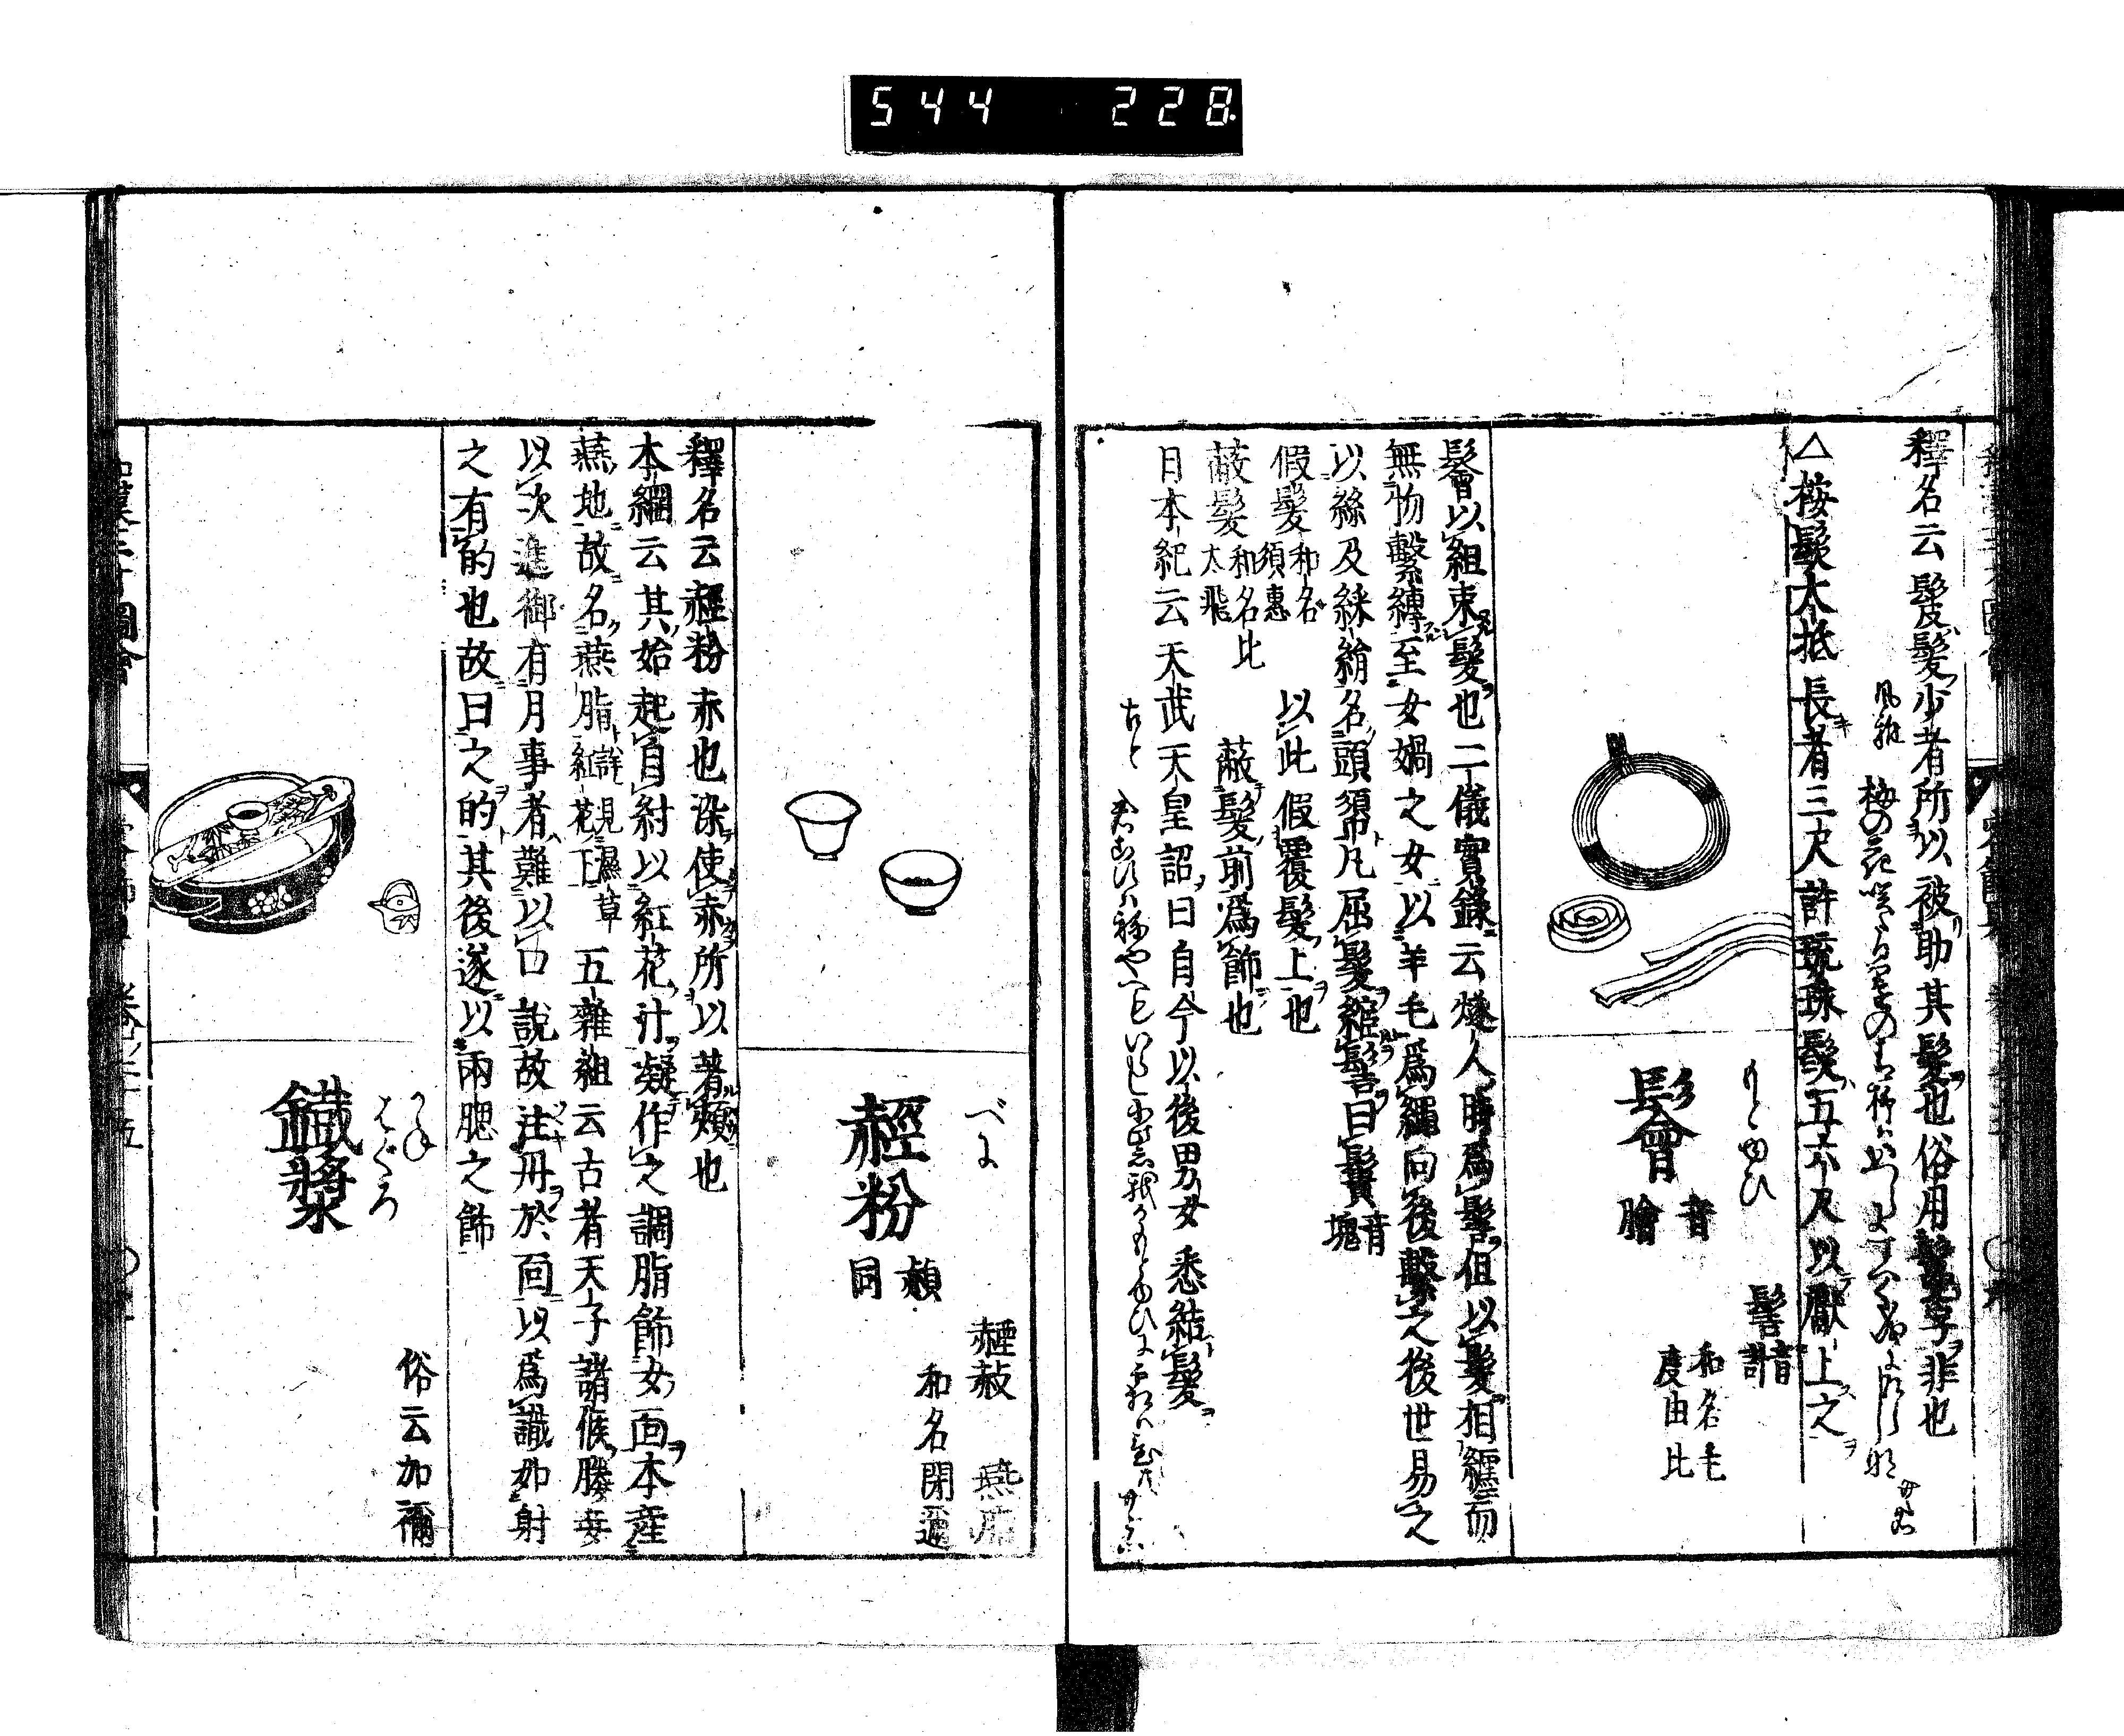 544 228
釋名云髲髮少者所以被助其髮也俗用鬘字非也
△按髲大抵長者三尺許琉球髲五六尺以獻上之
もとゆひ
䯤 音膾
髻 音計
和名毛度由比
䯤以組束髮也二儀實錄云燧人時爲髻但以髮相纏而
無物繫縛至女媧之女以羊毛爲繩向後繫之後世易之
以絲及綵絹名頭𢄼凡屈髮綰髻曰䰎 音塊
假髮 和名須惠 以此假覆髮上也
蔽髮 和名比太飛 蔽髮前爲飾也
日本紀云天武天皇詔曰自今以後男女悉結髮
べに
䞓粉
䪴同
赬赦 燕脂
和名閉邇
釋名云䞓粉赤也染使赤所以著頰也
本綱云其始起自紂以紅花汁凝作之調脂飾女面本產
燕地故名燕脂 詳見濕草紅花下 五雜組云古者天子諸侯媵妾
以次進御有月事者難以口說故注丹於面以爲識如射
之有的也故曰之的其後遂以兩腮之飾
かね
はぐろ
鐵漿
俗云加禰